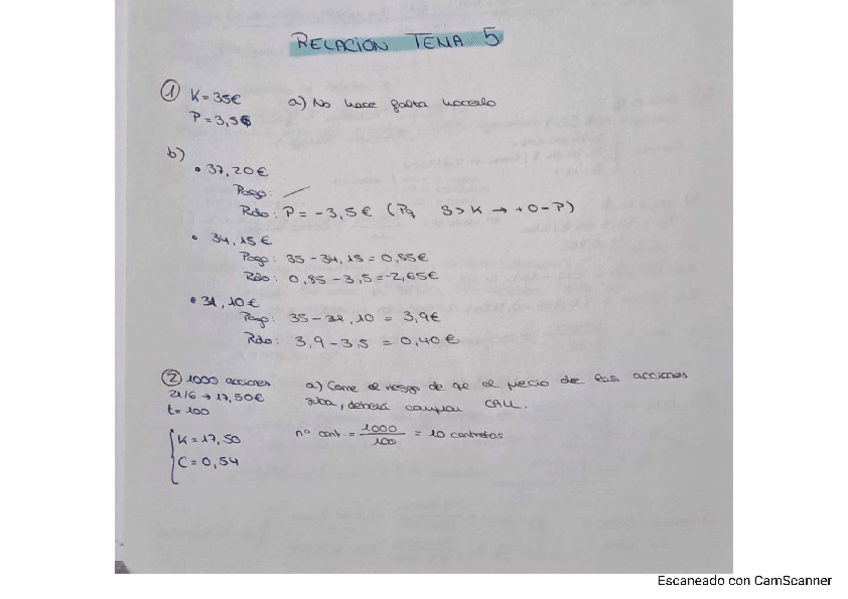 RELACION TEMA 5
① K = 35€ a) No hace falta hacerlo
P = 3,5€
b)
• 37,20€
Pago: —
Rdo: P = -3,5€ (Pq S > K → +0-P)
• 34,15€
Pago: 35 - 34,15 = 0,85€
Rdo: 0,85 - 3,5 = -2,65€
• 31,10€
Pago: 35 - 31,10 = 3,9€
Rdo: 3,9 - 3,5 = 0,40€
② 1000 acciones a) Corre el riesgo de qe el precio de las acciones
21/6 → 17,50€ suba, deberá comprar CALL.
t = 100
nº cont. = 1000/100 = 10 contratos
K = 17,50
C = 0,54
Escaneado con CamScanner